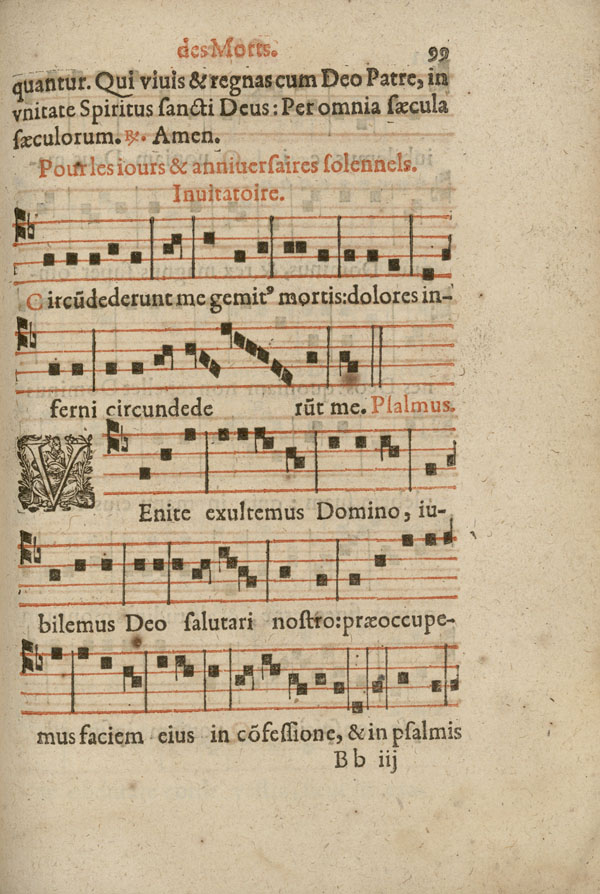 des Morts. 99
quantur. Qui viuis & regnas cum Deo Patre, in
vnitate Spiritus ſancti Deus : Per omnia ſæcula
ſæculorum. ℟. Amen.
Pour les iours & anniuerſaires ſolennels.
Inuitatoire.
Circũdederunt me gemitꝰ mortis: dolores in-
ferni circundede rũt me. Pſalmus.
VEnite exultemus Domino, iu-
bilemus Deo ſalutari noſtro: præoccupe-
mus faciem eius in cõfeſſione, & in pſalmis
B b iij